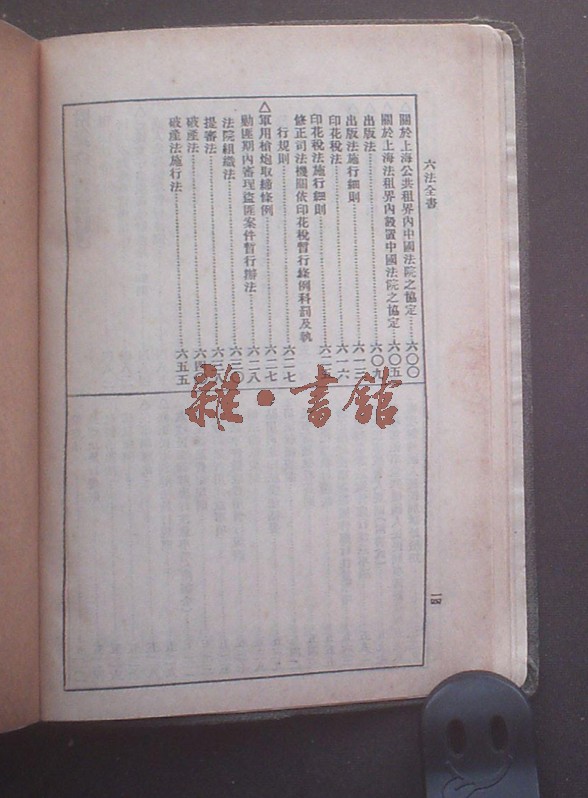 六法全書
△關於上海公共租界內中國法院之協定……六〇〇
△關於上海法租界內設置中國法院之協定……六〇五
出版法……六〇九
出版法施行細則……六一三
印花稅法……六一六
印花稅法施行細則……六二五
修正司法機關依印花稅暫行條例科罰及執
行規則……六二七
△軍用槍炮取締條例……六二七
勦匪期內審理盜匪案件暫行辦法……六二八
法院組織法……六三〇
提審法……六三八
破產法……六四
破產法施行法……六五五
雜·書館